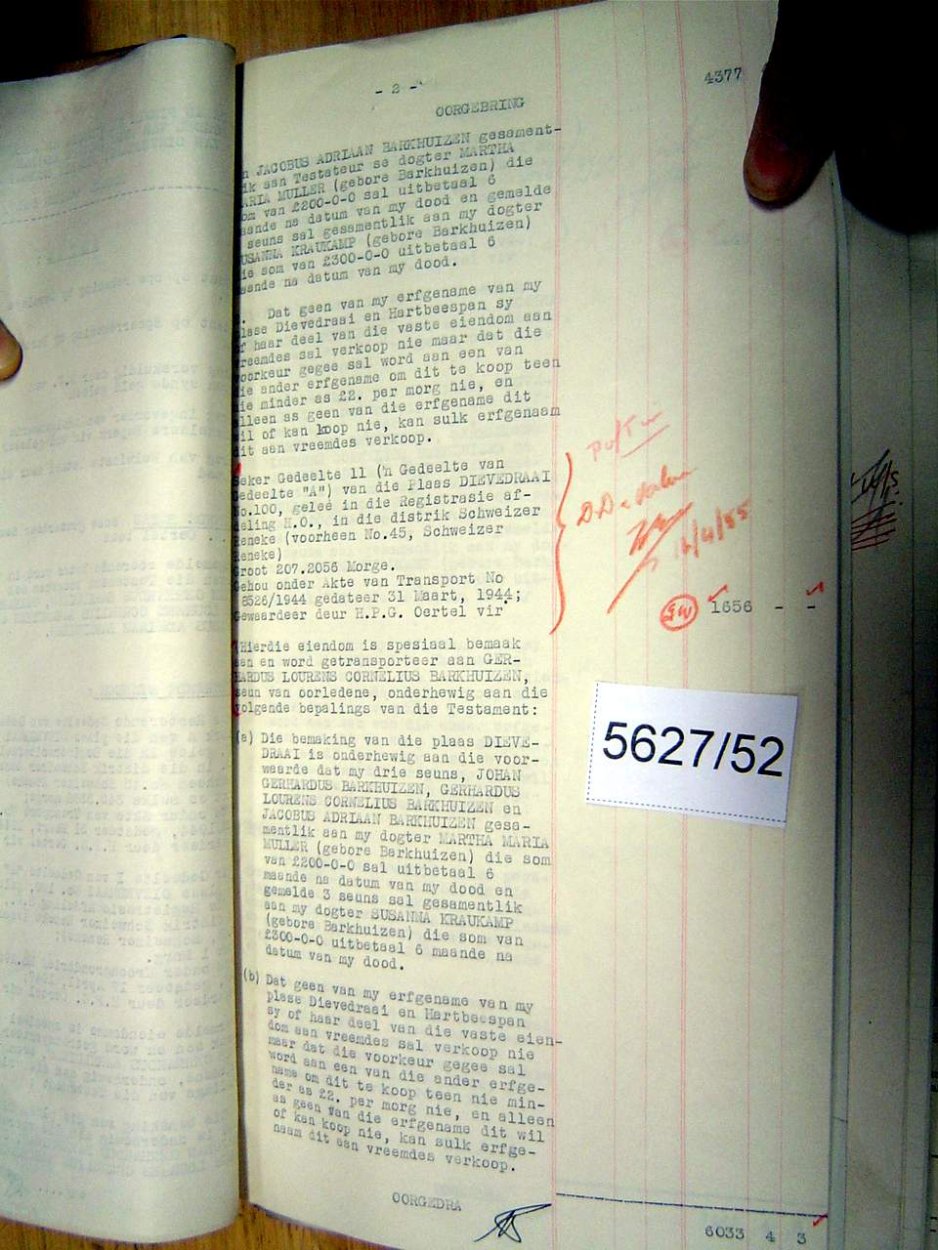 - 2 -
4377
OORGEBRING
n JACOBUS ADRIAAN BARKHUIZEN gesament-
ik aan Testateur se dogter MARTHA
ARIA MULLER (gebore Barkhuizen) die
om van £200-0-0 sal uitbetaal 6
aande na datum van my dood en gemelde
seuns sal gesamentlik aan my dogter
USANNA KRAUKAMP (gebore Barkhuizen)
ie som van £300-0-0 uitbetaal 6
aande na datum van my dood.
. Dat geen van my erfgename van my
lase Dievedraai en Hartbeespan sy
f haar deel van die vaste eiendom aan
reemdes sal verkoop nie maar dat die
oorkeur gegee sal word aan een van
ie ander erfgename om dit te koop teen
ie minder as £2. per morg nie, en
lleen as geen van die erfgename dit
il of kan koop nie, kan sulk erfgenaam
it aan vreemdes verkoop.
eker Gedeelte 11 ('n Gedeelte van
edeelte "A") van die Plaas DIEVEDRAAI
No.100, geleë in die Registrasie af-
deling H.O., in die distrik Schweizer
Reneke (voorheen No.45, Schweizer
Reneke)
Groot 207.2056 Morge.
Gehou onder Akte van Transport No
8526/1944 gedateer 31 Maart, 1944;
Gewaardeer deur H.P.G. Oertel vir
16/4/55
1656 - -
Hierdie eiendom is spesiaal bemaak
aan en word getransporteer aan GER-
HARDUS LOURENS CORNELIUS BARKHUIZEN,
seun van oorledene, onderhewig aan die
volgende bepalings van die Testament:
5627/52
(a) Die bemaking van die plaas DIEVE-
DRAAI is onderhewig aan die voor-
waarde dat my drie seuns, JOHAN
GERHARDUS BARKHUIZEN, GERHARDUS
LOURENS CORNELIUS BARKHUIZEN en
JACOBUS ADRIAAN BARKHUIZEN gesa-
mentlik aan my dogter MARTHA MARIA
MULLER (gebore Barkhuizen) die som
van £200-0-0 sal uitbetaal 6
maande na datum van my dood en
gemelde 3 seuns sal gesamentlik
aan my dogter SUSANNA KRAUKAMP
(gebore Barkhuizen) die som van
£300-0-0 uitbetaal 6 maande na
datum van my dood.
(b) Dat geen van my erfgename van my
plase Dievedraai en Hartbeespan
sy of haar deel van die vaste eien-
dom aan vreemdes sal verkoop nie
maar dat die voorkeur gegee sal
word aan een van die ander erfge-
name om dit te koop teen nie min-
der as £2. per morg nie, en alleen
as geen van die erfgename dit wil
of kan koop nie, kan sulk erfge-
naam dit aan vreemdes verkoop.
OORGEDRA
6033 4 3